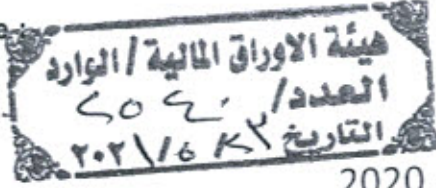 هيئة الاوراق المالية / الوارد
العدد /
التاريخ ٢٣ / ٥ / ٢٠٢١
2020